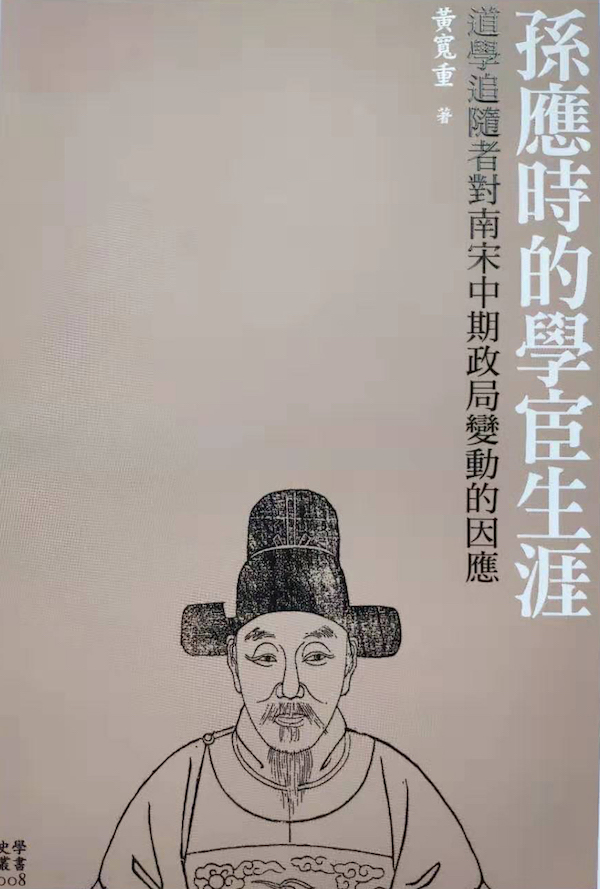 孫應時的學宦生涯
道學追隨者對南宋中期政局變動的因應
黃寬重 著
學書
史叢
008